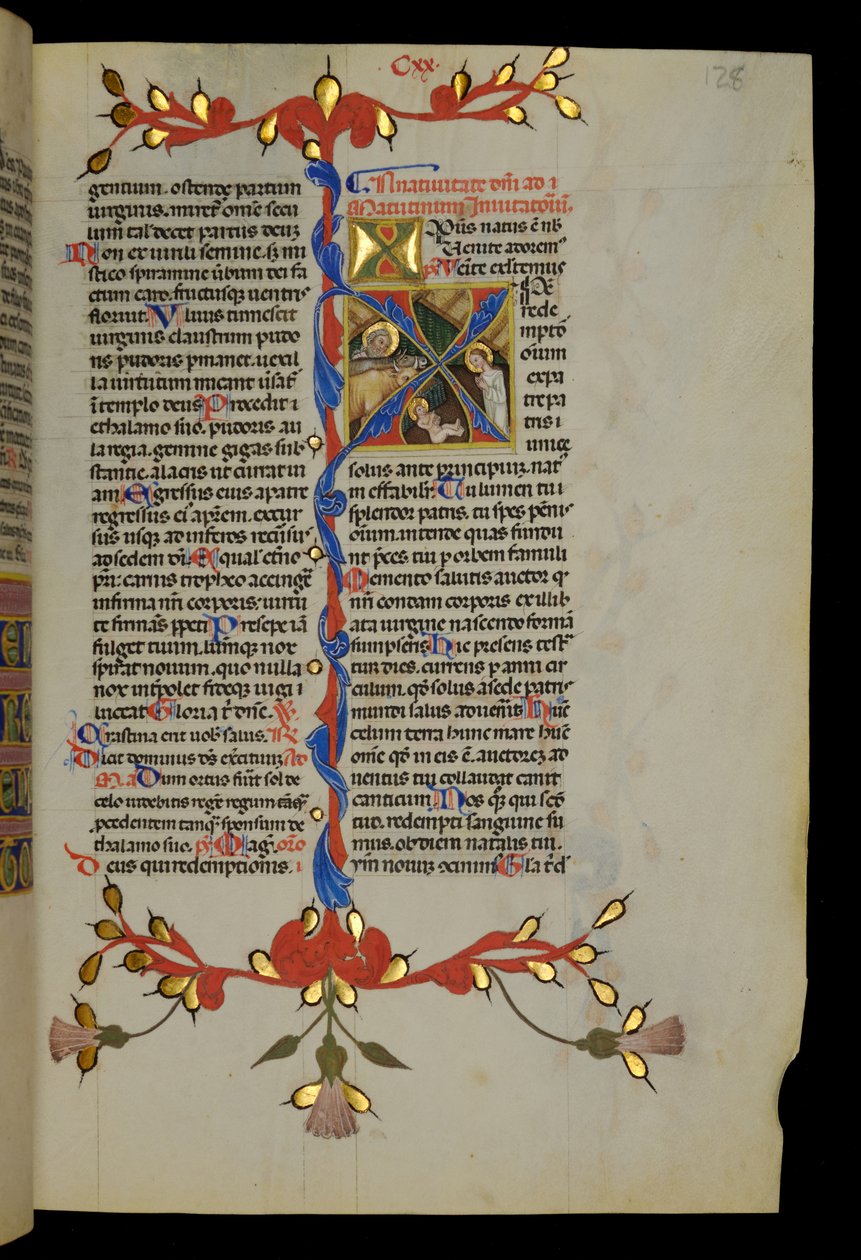 Cxx.
128
gentium. ostende partum
uirginis. miret᷑ om̄e secu
lum talis decet partus deuꝫ
Non ex uirili semine. sꝫ mi
stico spiramine ũbum dei fa
ctum caro. fructusqꝫ uentris
floruit. Vluus tumescit
uirginis claustrum pudo
ris pudoris ꝑmanet. uexil
la uirtutum micant ũsat᷑
ĩ templo deus Procedit
e thalamo suo. pudoris au
la regia. gemine gigas sub
stantie. alacris ut currat ui
am Egressus eius a patre
regressus ei᷒ ap̃rem. excur
sus usqꝫ ad inferos recursus
ad sedem dei. Equalis eterno
pri: carnis tropheo accingere
infirma nr̃i corporis. uirtu
te firmans ppeti Presepe iã
fulget tuum. lumẽqꝫ nox
spirat nouum. quo nulla
nox inter̃polet fideqꝫ iugi
luceat Gloria t᷑ dñe. V᷒.
Crastina erit uob̃ salus. R
Dicit dominus d̃s exercituum. Ad
Mã. a Dum ortus fuerit sol de
celo uidebitis regẽ regum
ꝓcedentem tanqꝫ sponsum de
thalamo suo. p᷒ Mag̃. orõ
Deus qui redemptionis.
In natiuitate dñi ad
Matutinum Inuitatoriũ.
Xpus natus ẽ nob̃
Uenite adorem᷒
p᷒ Ueñite exultemus
Xpe
rede
mptor̃
oium
ex pa
tre pa
tris
unice
solus ante principium. nat᷒
in effabil᷑r. Tu lumen tu
splendor patris. tu spes peñi
oium. intende quas fundu
nt p̃ces tui ꝑ orbem famuli
Memento salutis auctor qꝫ
nr̃i condam corporis ex illib
ata uirgine nascendo formã
sumpseris Hic presens testa
tur dies. currens ꝑ anni cir
culum. qꝫ solus a sede patris
mundi salus adueneris Hũc
celum terra hunc mare hũc
om̃e qꝫ in eis ẽ. auctorem ad
uentus tui collaudat canit
canticum Nos qꝫ qui scõ
tuo. redempti sanguine su
mus. ob diem natalis tui.
ymnum nouum concinimus Gl̃a t᷑ d